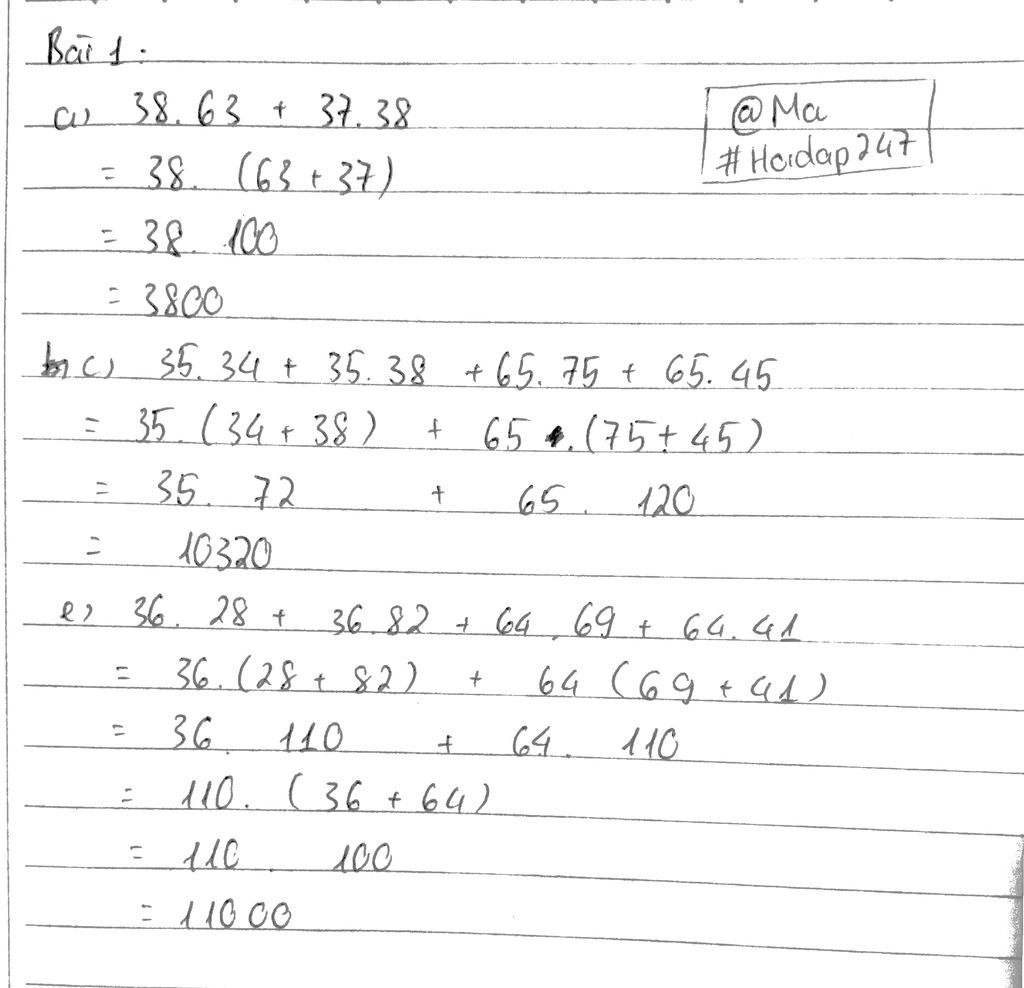 Bài 1:
a) 38.63 + 37.38
@Ma
#Hoidap247
= 38. (63 + 37)
= 38. 100
= 3800
c) 35.34 + 35.38 + 65.75 + 65.45
= 35.(34 + 38) + 65 .(75 + 45)
= 35. 72 + 65. 120
= 10320
e) 36. 28 + 36.82 + 64.69 + 64.41
= 36.(28 + 82) + 64 (69 + 41)
= 36. 110 + 64. 110
= 110. (36 + 64)
= 110. 100
= 11000